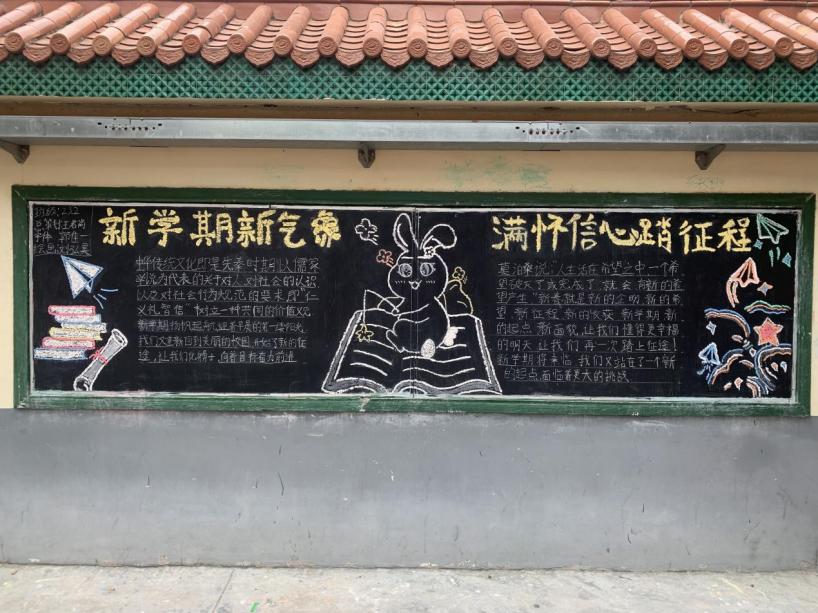 班级:232
新学期新气象
中华传统文化即是先秦时期以儒家
学说为代表的关于对人对社会的认识
以及对社会行为规范的要求即"仁
义礼智信"树立一种共同的价值观
新学期扬帆起航,迎着早晨的第一缕阳光
我们又重新回到美丽的校园,开始了新的征
途,让我们化为骑士,向着目标奋勇前进
满怀信心踏征程
莫泊桑说:"人生活在希望之中一个希
望破灭了或完成了就会有新的希
望产生"新春就是新的企明,新的希
望,新征程,新的收获,新学期,新
的起点,新面貌,让我们懂得更幸福
的明天,让我们再一次踏上征途!
新学期将来临,我们又站在了一个新
的起点,面临着更大的挑战